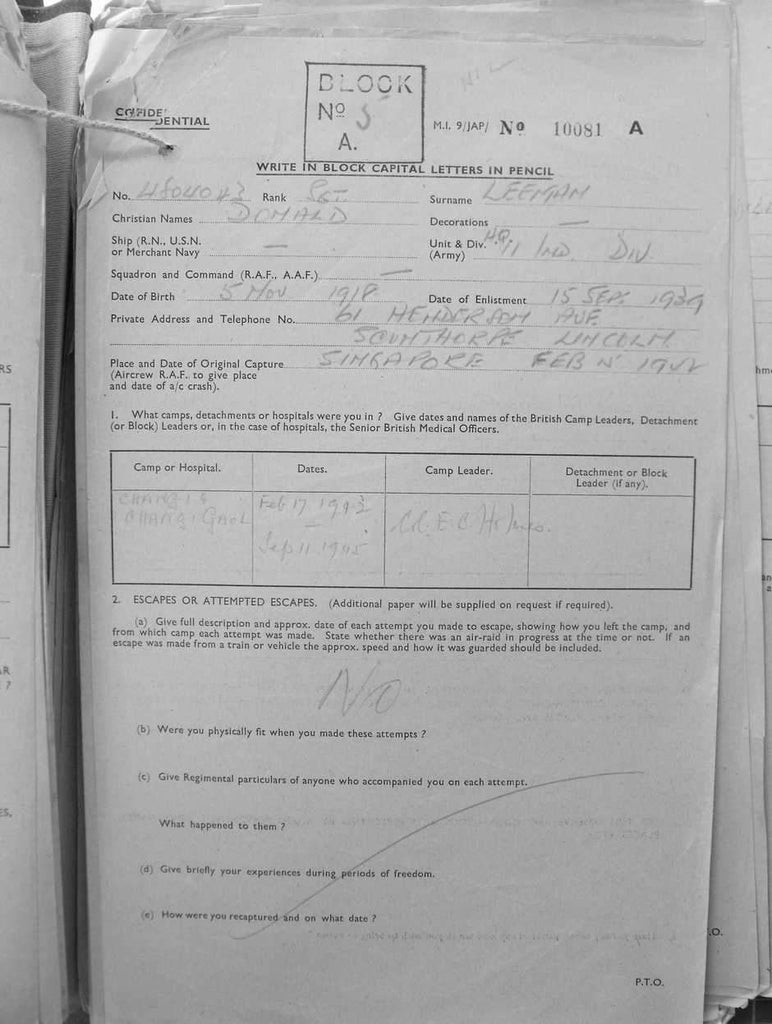 BLOCK
No 5
A.
CONFIDENTIAL
M.I. 9/JAP/ No 10081 A
WRITE IN BLOCK CAPITAL LETTERS IN PENCIL
No. 4804043 Rank SGT. Surname LEEMAN
Christian Names DONALD Decorations —
Ship (R.N., U.S.N. or Merchant Navy — Unit & Div. (Army) HQ 11 IND. DIV.
Squadron and Command (R.A.F., A.A.F.) —
Date of Birth 5 NOV 1918 Date of Enlistment 15 SEPT 1939
Private Address and Telephone No. 61 HENDERSON AVE.
SCUNTHORPE LINCOLN.
Place and Date of Original Capture SINGAPORE FEB 1942
(Aircrew R.A.F. to give place
and date of a/c crash).
1. What camps, detachments or hospitals were you in ? Give dates and names of the British Camp Leaders, Detachment
(or Block) Leaders or, in the case of hospitals, the Senior British Medical Officers.
Camp or Hospital. Dates. Camp Leader. Detachment or Block
Leader (if any).
CHANGI & Feb 17 1942
CHANGI GAOL — Col. E. B. Holmes.
Sep 11. 1945
2. ESCAPES OR ATTEMPTED ESCAPES. (Additional paper will be supplied on request if required).
(a) Give full description and approx. date of each attempt you made to escape, showing how you left the camp, and
from which camp each attempt was made. State whether there was an air-raid in progress at the time or not. If an
escape was made from a train or vehicle the approx. speed and how it was guarded should be included.
No
(b) Were you physically fit when you made these attempts ?
(c) Give Regimental particulars of anyone who accompanied you on each attempt.
What happened to them ?
(d) Give briefly your experiences during periods of freedom.
(e) How were you recaptured and on what date ?
P.T.O.